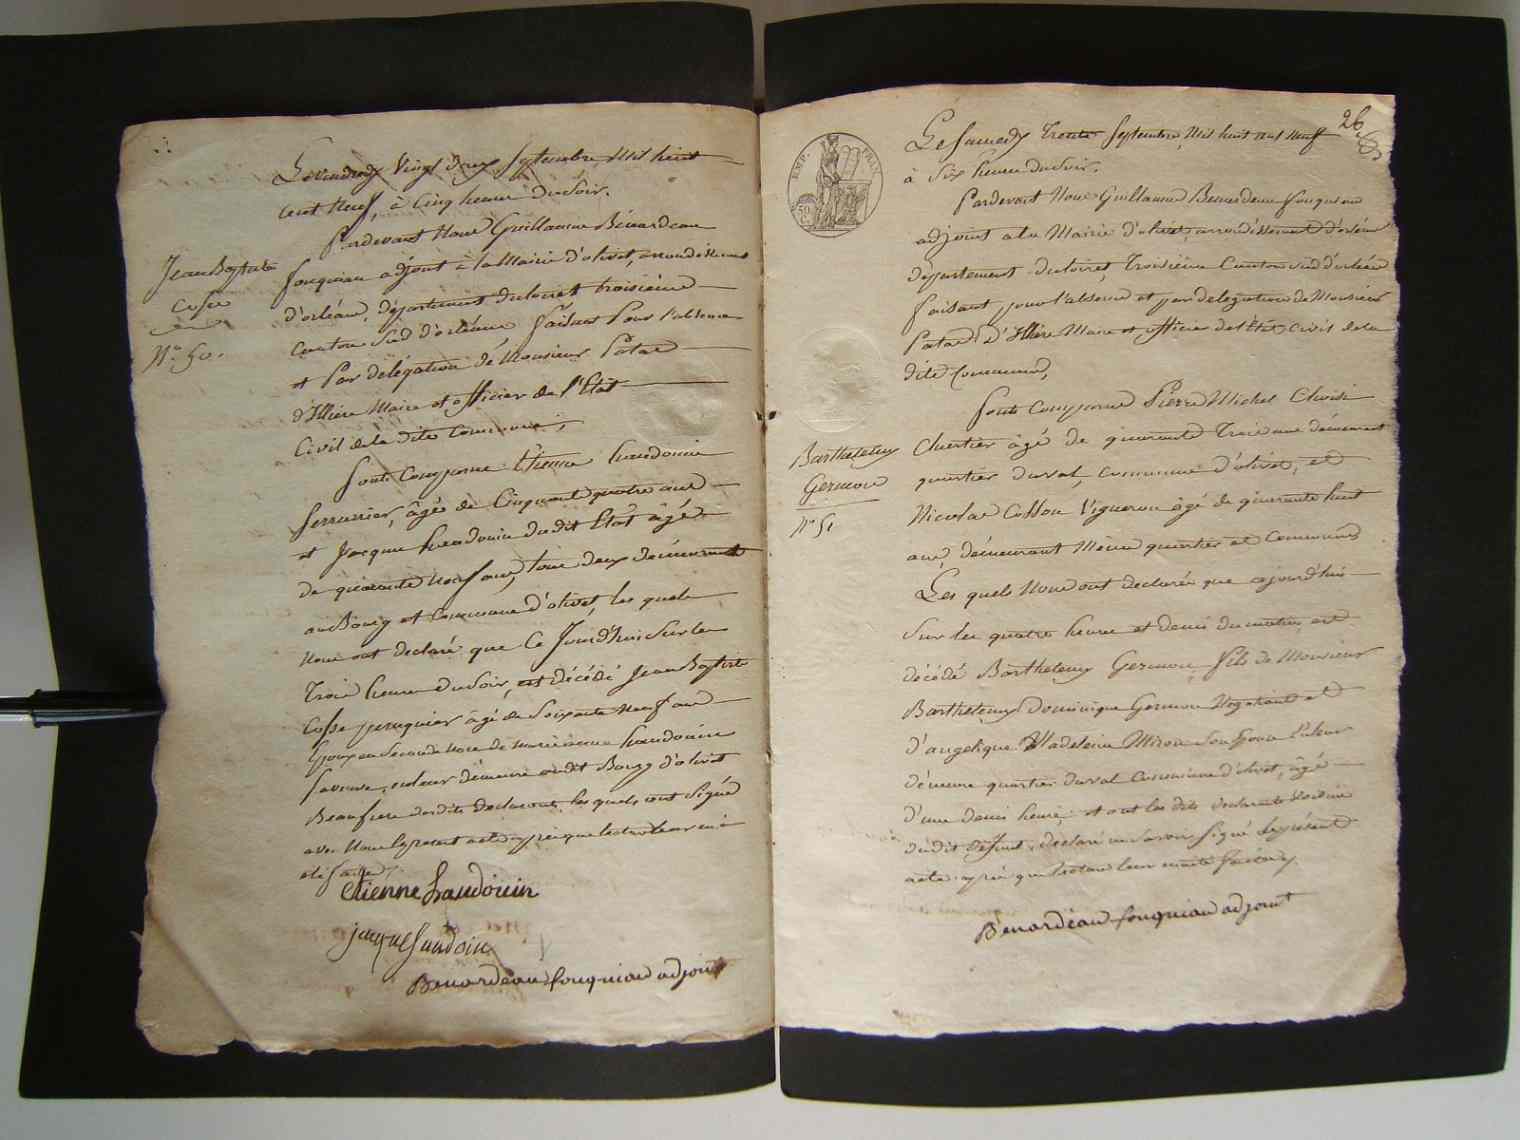 Le vendredy vingt deux septembre, mil huit
cent neuf, à Cinq heures du soir.
Pardevant Nous Guillaume Bénardeau
fouqueau adjoint à la Mairie d'olivet, arrondissement
d'orléans, département du loiret troisieme
Canton sud d'orléans, faisant Pour l'absence
et Par délégation de Monsieur Patas
d'Illiers Maire et officier de l'Etat
Civil de la dite Commune,
Jean Baptiste
Cosse
N.º 50.
sont Comparus Etienne haudouin
serrurier, âgé de Cinquante quatre ans
et Jacques haudouin dudit Etat âgé
de quarante neuf ans, tous deux demeurants
au Bourg et Commune d'olivet, les quels
nous ont declaré que Ce Jourd'hui sur les
Trois heures du soir, est décédé Jean Baptiste
Cosse perruquier âgé de soixante neuf ans
Epoux en seconde noce de Marie anne haudouin
sa veuve, en leur demeure audit Bourg d'olivet
Beaufrere desdits declarants, les quels ont signé
avec Nous le present acte après que lecture leur en à
été faite,
Etienne haudouin
jacque haudoin
Benardeau fouquiau adjoint
26
EMP. FRAN.
50 C.
Le Samedy Trente septembre, Mil huit cent Neuf
à six heures du soir.
Pardevant Nous Guillaume Benardeau fouqueau
adjoint a la Mairie d'olivet, arrondissement d'orléans
département du loiret, Troisième Canton sud d'orléans
faisant pour l'absence et par delegation de Monsieur
Patas d'Illiers Maire et officier de l'Etat Civil de la
dite Commune,
Barthelemy
Germon
N.º 51
sont Comparus Pierre Michel Clovis
Chartier âgé de quarante Trois ans demeurant
quartier du val, Commune d'olivet, et
Nicolas Cosson Vigneron âgé de quarante huit
ans, demeurant Même quartier et Commune
Les quels Nous ont declarés que aujourd'hui
sur les quatre heures et demis du matin est
décédé Barthelemy Germon, fils de Monsieur
Barthelemy Dominique Germon Negotiant et
d'angelique Madeleine Miron son Epouse en leur
demeure quartier du val Commune d'olivet, âgé
d'une demis heure, et ont les dits declarants
dudit deffunt, declaré ne savoir signé le présent
acte après que lecture leur en a été faite
Bénardéau fouquiau adjoint